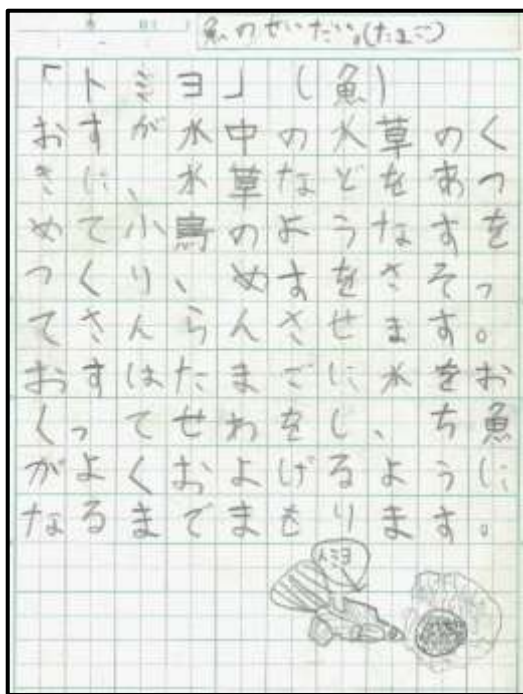 魚のせいたい。(たまご)
「トミヨ」(魚)
おすが水中の水草のく
きに、水草などをあつ
めて小鳥のようなすを
つくり、めすをさそっ
てさんらんさせます。
おすはたまごに水をお
くってせわをし、ち魚
がよくおよげるように
なるまでまもります。
トミヨ